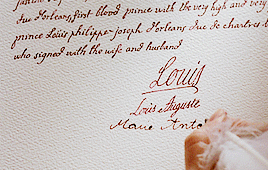 due d'orleans, first blood prince with the very high and very
prince Loüis philippe-joseph D'orleans due de chartres
who signed with the wife and husband
Louis
Loüis Auguste
Marie Anto